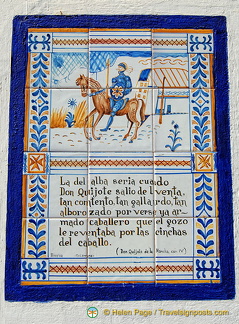 La del alba sería cuando
Don Quijote salio de l venta,
tan contento, tan gallardo, tan
alboro zado por verse ya ar-
mado caballero que el gozo
le reventaba por las cinchas
del caballo.
( Don Quijote de la Mancha, cap. IV )
© Helen Page / Travelsignposts.com